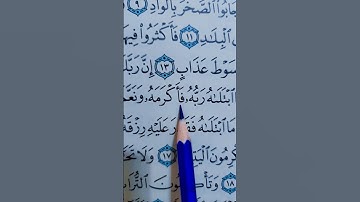 جَابُوا۟ ٱلصَّخْرَ بِٱلْوَادِ ٩
ٱلْبِلَـٰدِ ١١ فَأَكْثَرُوا۟ فِيهَا
سَوْطَ عَذَابٍ ١٣ إِنَّ رَبَّكَ
ٱبْتَلَىٰهُ رَبُّهُۥ فَأَكْرَمَهُۥ وَنَعَّمَ
مَا ٱبْتَلَىٰهُ فَقَدَرَ عَلَيْهِ رِزْقَهُ
ٱلْيَتِ ١٧ وَلَا تَحَـٰ
١٨ وَتَأْكُلُونَ ٱلتُّرَاثَ